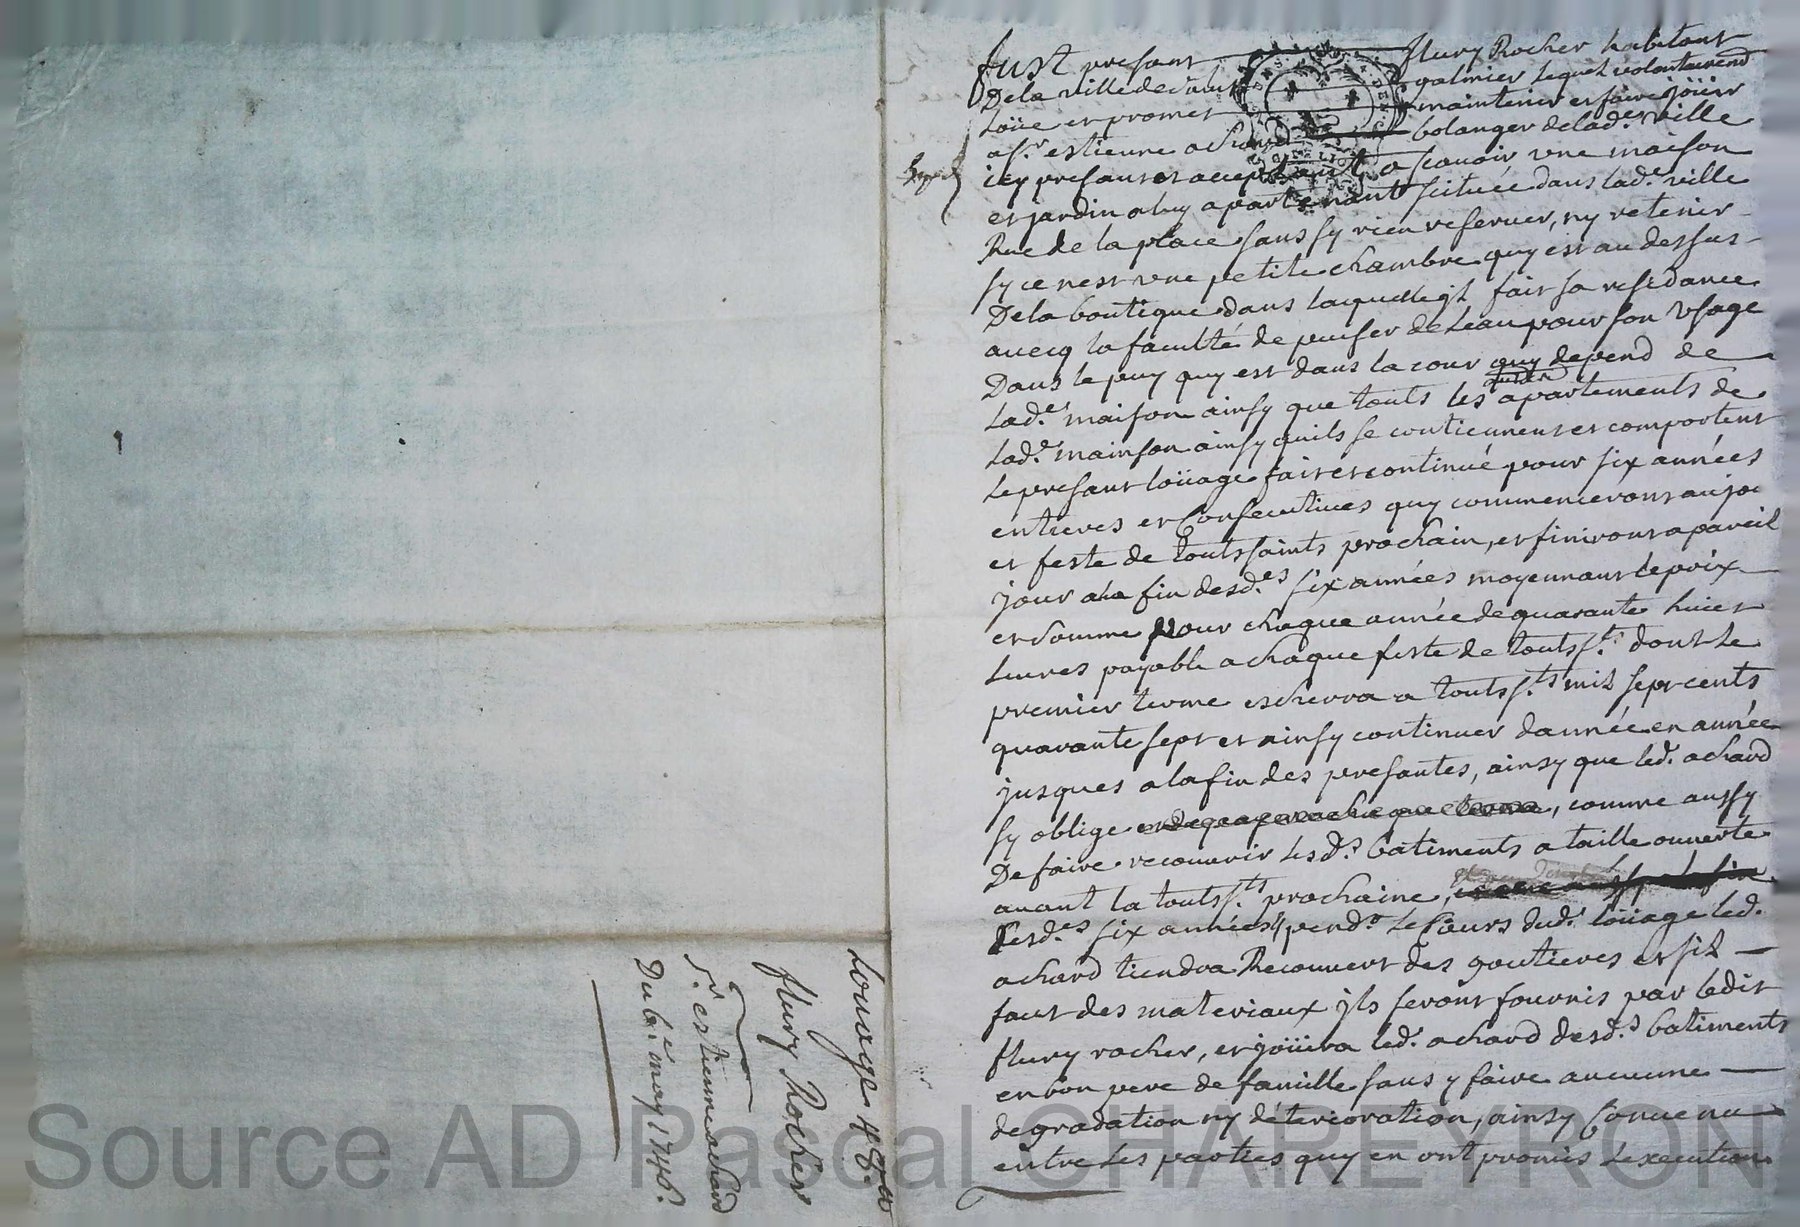 Louage 48ᵗᵗ
fleury Rocher
Sʳ estienne achard
Du 6.ᵉ may 1746.
fust presant fleury Rocher habitant
De la ville de saint galmier lequel volontairemᵗ
Loüe et promet maintenir et faire joüir
a sʳ estienne achard bolanger de lad.ᵉ ville
icy presant et acceptant, a scavoir une maison
et jardin a luy apartenant scituée dans lad.ᵉ ville
Rue de la place sans sy rien reserver, ny retenir
sy ce nest une petite chambre quy est au dessus
De la boutique dans laquelle jl fait sa residance
avecq la faculté de puiser de Leau pour son Usage
Dans le puy quy est dans la cour quy depend de
Lad.ᵉ maison ainsy que touts les apartements de
Lad.ᵉ mainson ainsy quils se contiennent et comportent
Le presant loüage fait et continué pour six années
entieres et Consecutives quy commenceront au jo
et feste de toutssaints prochain, et finiront a pareil
jour a la fin desd.ᵉˢ six années moyennant le prix
et somme pour chaque année de quarante huict
Livres payable a chaque feste de toutsS.ᵗˢ dont Le
premier terme escherra a toutsS.ᵗˢ mil sept cents
quarante sept et ainsy continuer dannée en année
jusques a la fin des presantes, ainsy que led. achard
sy oblige, comme aussy
De faire recouvrir Lesd.ˢ batiments a taille ouverte
avant la toutsS.ᵗˢ prochaine,
desd.ᵉˢ six années, pend.ᵗ Le Cours dud.ᵗ loüage led.
achard tiendra Recouvert des goutieres et sil
faut des materiaux jls seront fournis par ledit
fleury rocher, et joüira led. achard desd.ˢ batiments
en bon pere de famille sans y faire aucunne
degradation ny déterioration, ainsy Convenu
entre Les parties quy en ont promis Lexecution
Source AD Pascal CHAREYRON